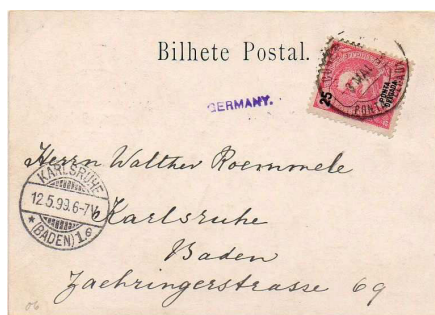 Bilhete Postal.
25
PONTA DELGADA
GERMANY.
Herrn Walther Roemmele
KARLSRUHE
12.5.99.6-7N
(BADEN) 1.e
Karlsruhe
Baden
Zaehringerstrasse 69
06